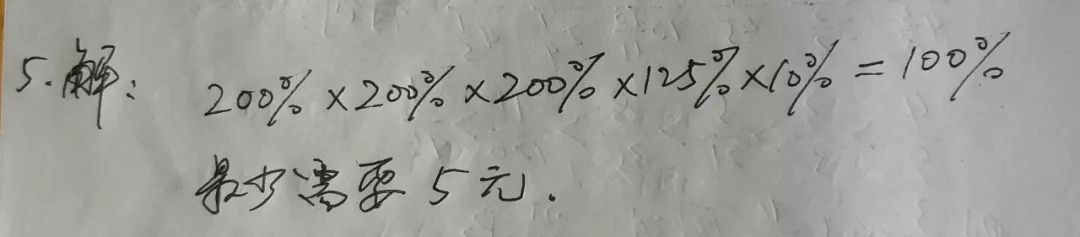 5.解: 200%×200%×200%×125%×10%=100%
最少需要 5元.